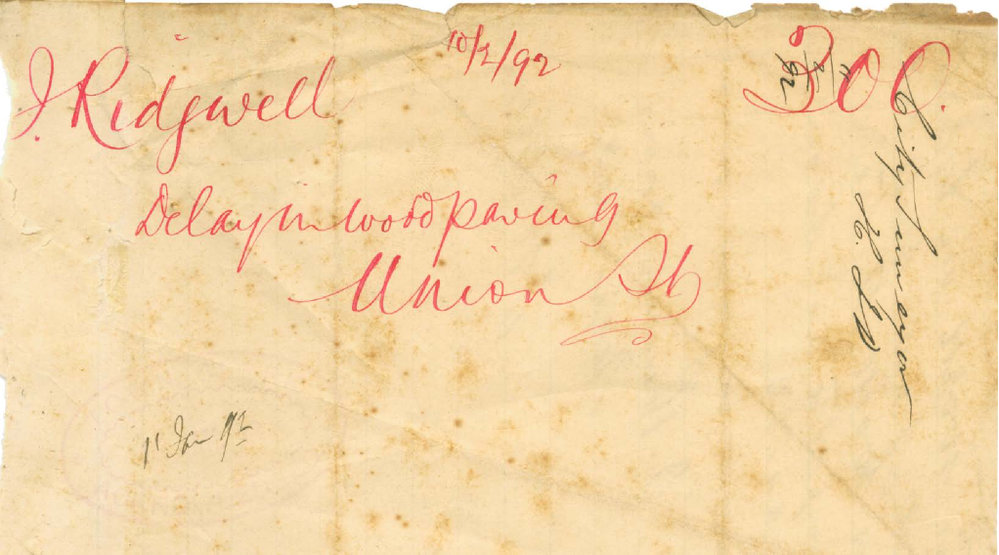 J. Ridgwell
10/2/92
Delay in wood paving
Union St
City Surveyor
11 Jan 92